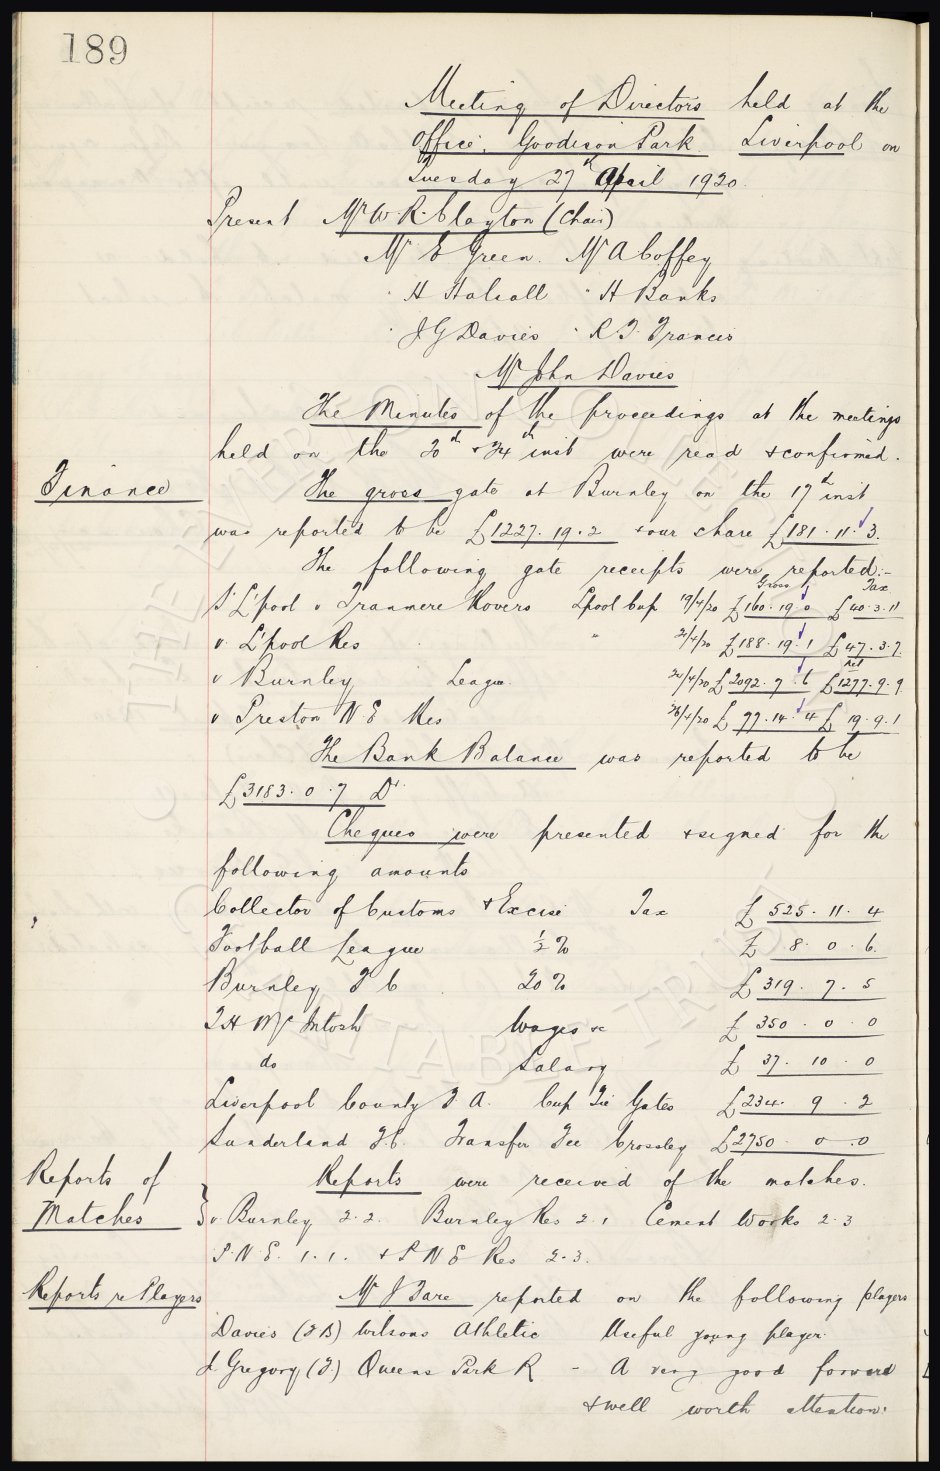 189
Meeting of Directors held at the
Office, Goodison Park Liverpool on
Tuesday 27th April 1920.
Present Mr W. R. Clayton (Chair)
Mr E Green. Mr A Coffey
" H Halsall " H Banks
" J G Davies " R. T. Francis
Mr John Davies
The Minutes of the proceedings at the meetings
held on the 20th & 24th inst were read & confirmed.
Finance
The gross gate at Burnley on the 17th inst
was reported to be £1227. 19. 2 & our share £181. 11. 3.
The following gate receipts were reported:-
Gross Tax
S. L'pool v Tranmere Rovers Lpool Cup 19/4/20 £160. 19. 0 £40. 3. 11
v. L'pool Res " 21/4/20 £188. 19. 1 £47. 3. 7.
Net
v Burnley League. 24/4/20 £2092. 7. 6 £1277. 9. 9
v Preston N E Res 26/4/20 £77. 14. 4 £19. 9. 1
The Bank Balance was reported to be
£3183. 0. 7 Dr.
Cheques were presented & signed for the
following amounts
Collector of Customs & Excise Tax £525. 11. 4
Football League ½% £8. 0. 6.
Burnley F C 20% £319. 7. 5
T H McIntosh Wages &c £350. 0. 0
do Salary £37. 10. 0
Liverpool County F. A. Cup Tie Gates £234. 9. 2
Sunderland F C. Transfer Fee Crossley £2750. 0. 0
Reports of
Matches
Reports were received of the matches.
v. Burnley 2. 2. Burnley Res 2. 1 Cement Works 2. 3
P. N. E. 1. 1. & P N E Res 2. 3.
Reports re Players
Mr J Fare reported on the following players
Davies (F B) Wilsons Athletic Useful young player.
J Gregory (F.) Queens Park R - A very good forward
& well worth attention.